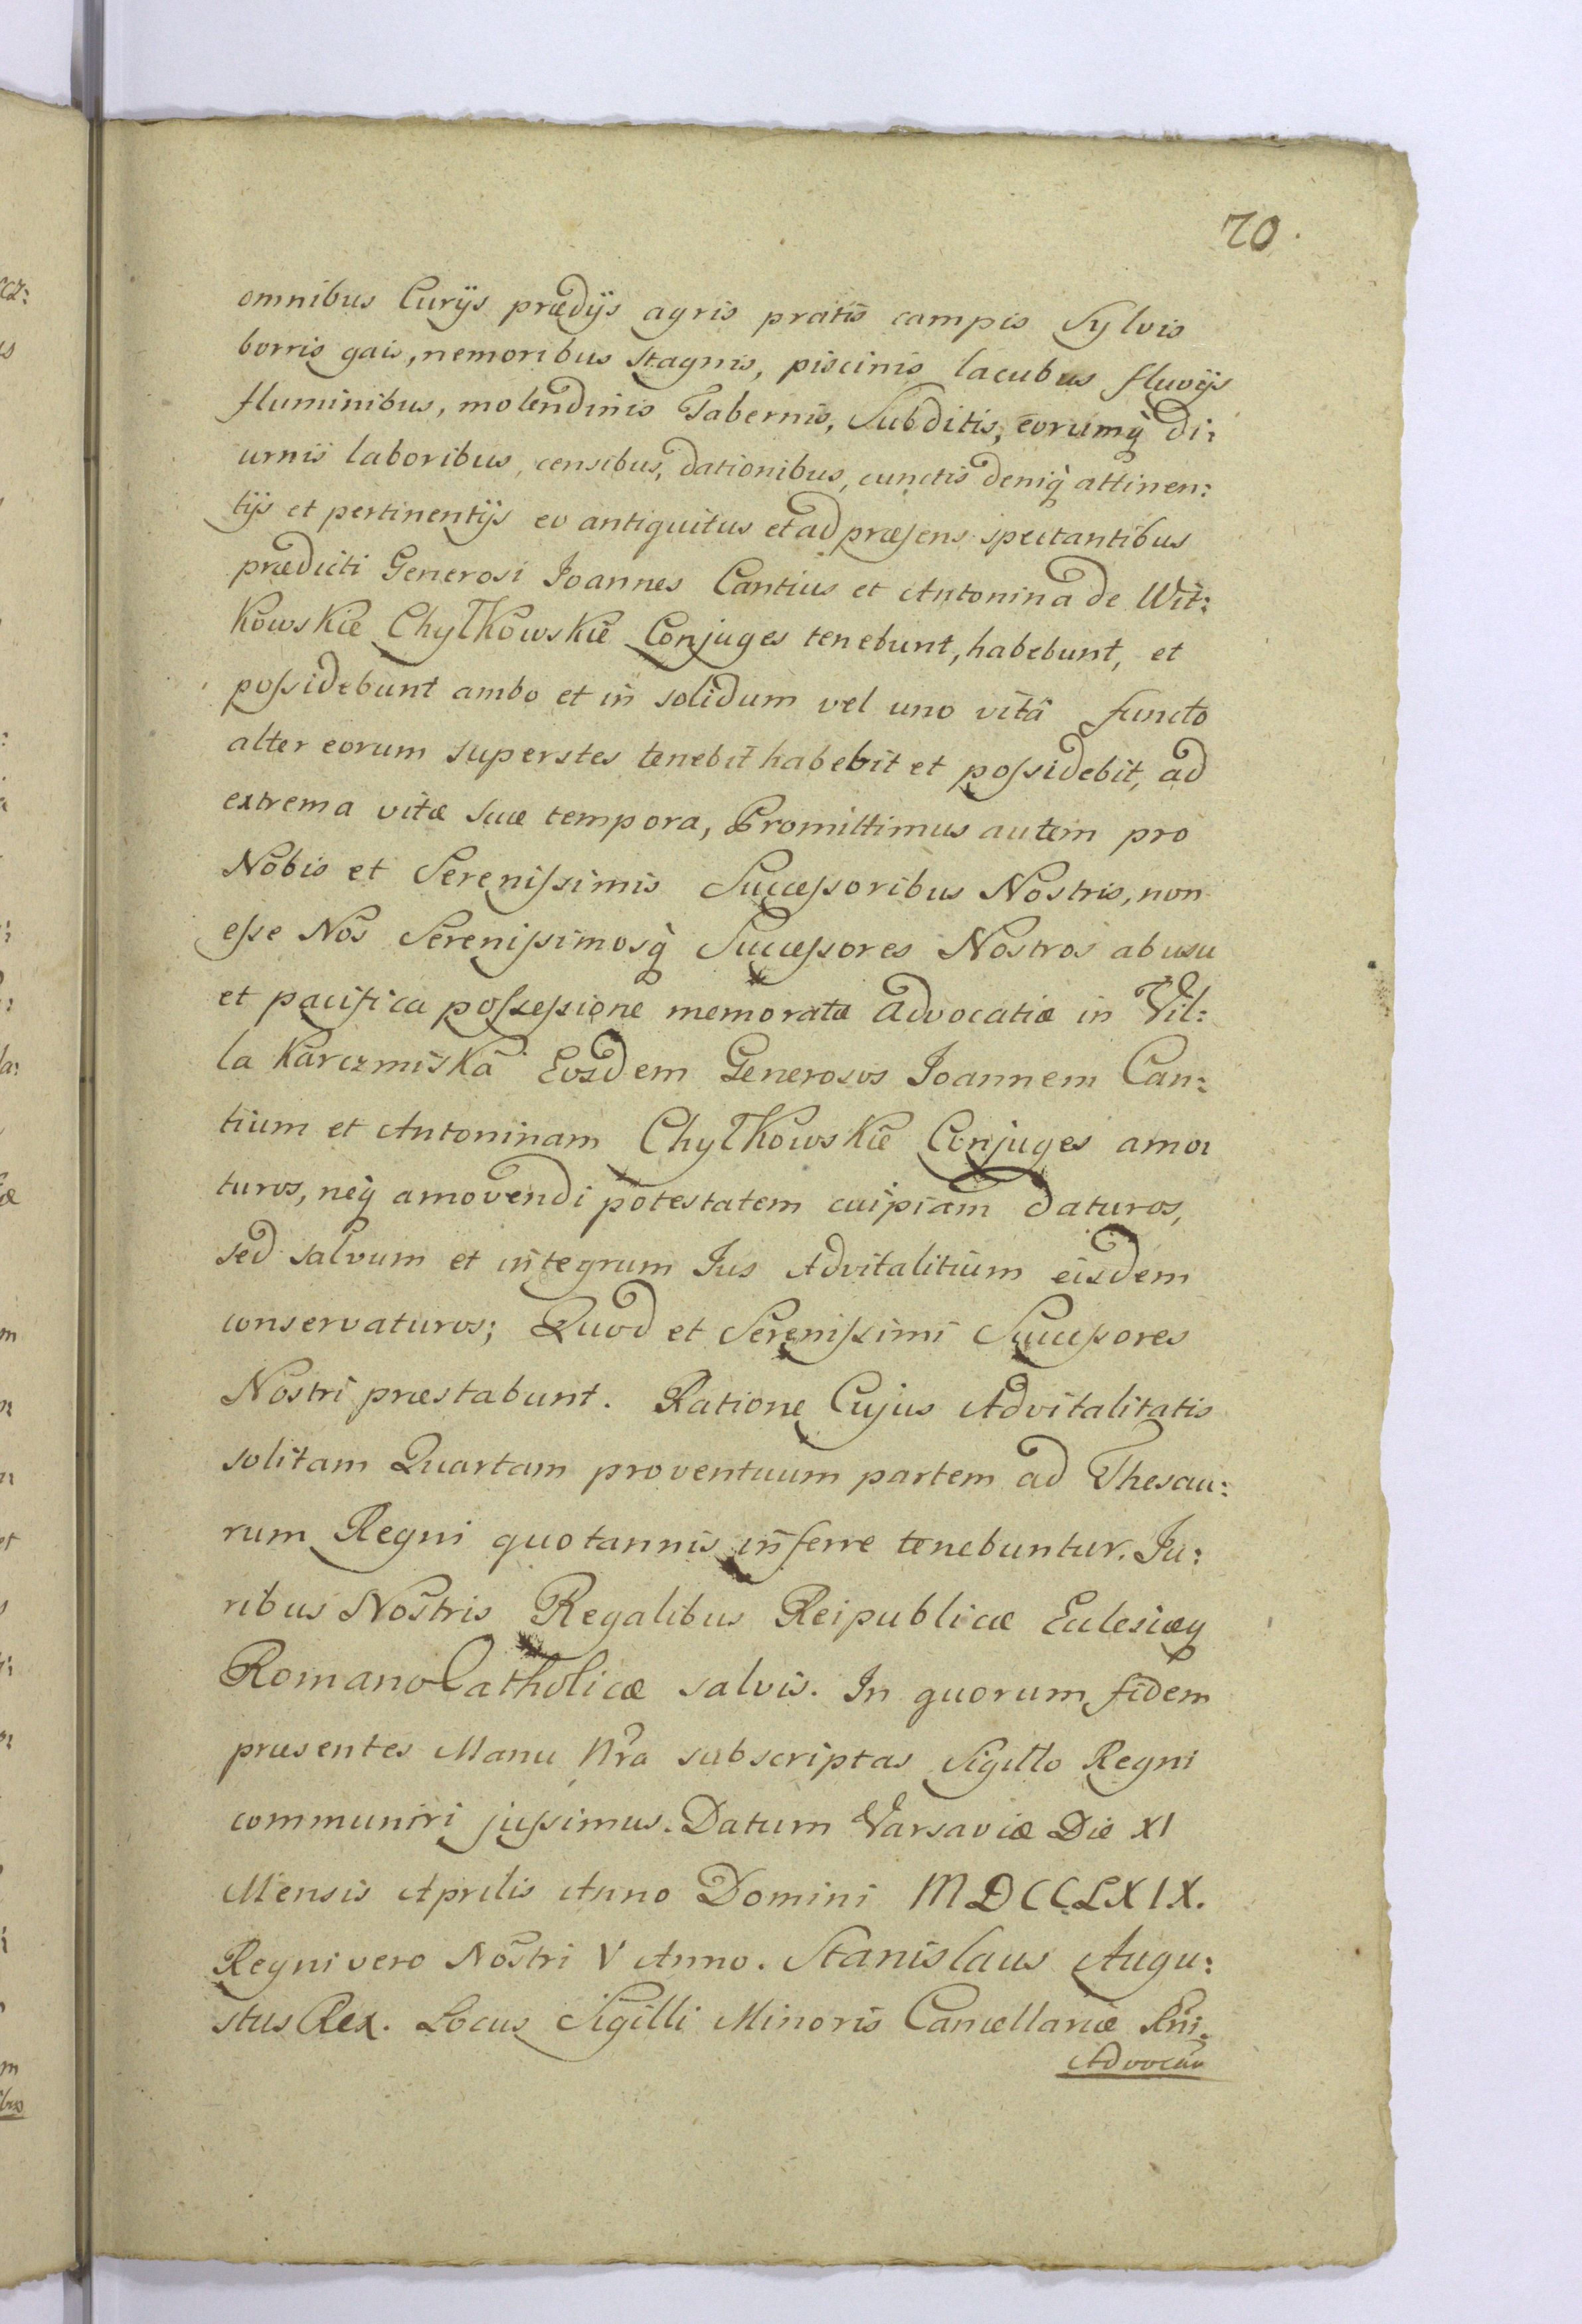 70.
omnibus Curijs prædijs agris pratis campis Sylvis
borris gais, nemoribus stagnis, piscinis lacubus fluvijs
fluminibus, molendinis Tabernis, Subditis, eorumq̀ di:
urnis laboribus, censibus, dationibus, cunctis deniq̀ attinen:
tijs et pertinentijs eo antiquitus et ad præsens spectantibus
prædicti Generosi Joannes Cantius et Antonina de Wit:
kowskie Chylkowskie Conjuges tenebunt, habebunt, et
possidebunt ambo et in solidum vel uno vitâ functo
alter eorum superstes tenebit habebit et possidebit, ad
extrema vitæ suæ tempora, Promittimus autem pro
Nobis et Serenissimis Successoribus Nostris, non
esse Nos Serenissimosq̀ Successores Nostros ab usu
et pacifica possessione memoratæ advocatiæ in Vil:
la Karczmiska Eosdem Generosos Joannem Can:
tium et Antoninam Chylkowskie Conjuges amo:
turos, neq̀ amovendi potestatem cuipiam daturos,
sed salvum et integrum Jus Advitalitium eisdem
conservaturos; Quod et Serenissimi Successores
Nostri præstabunt. Ratione Cujus Advitalitatis
solitam Quartam proventuum partem ad Thesau:
rum Regni quotannis inferre tenebuntur. Ju:
ribus Nostris Regalibus Reipublicæ Eclesiæq
Romano Catholicæ salvis. In quorum fidem
præsentes Manu Nra subscriptas Sigillo Regni
communiri jussimus. Datum Varsaviæ Die XI
Mensis Aprilis Anno Domini MDCCLXIX.
Regni vero Nostri V Anno. Stanislaus Augu:
stus Rex. Locus Sigilli Minoris Cancellariæ Rni.